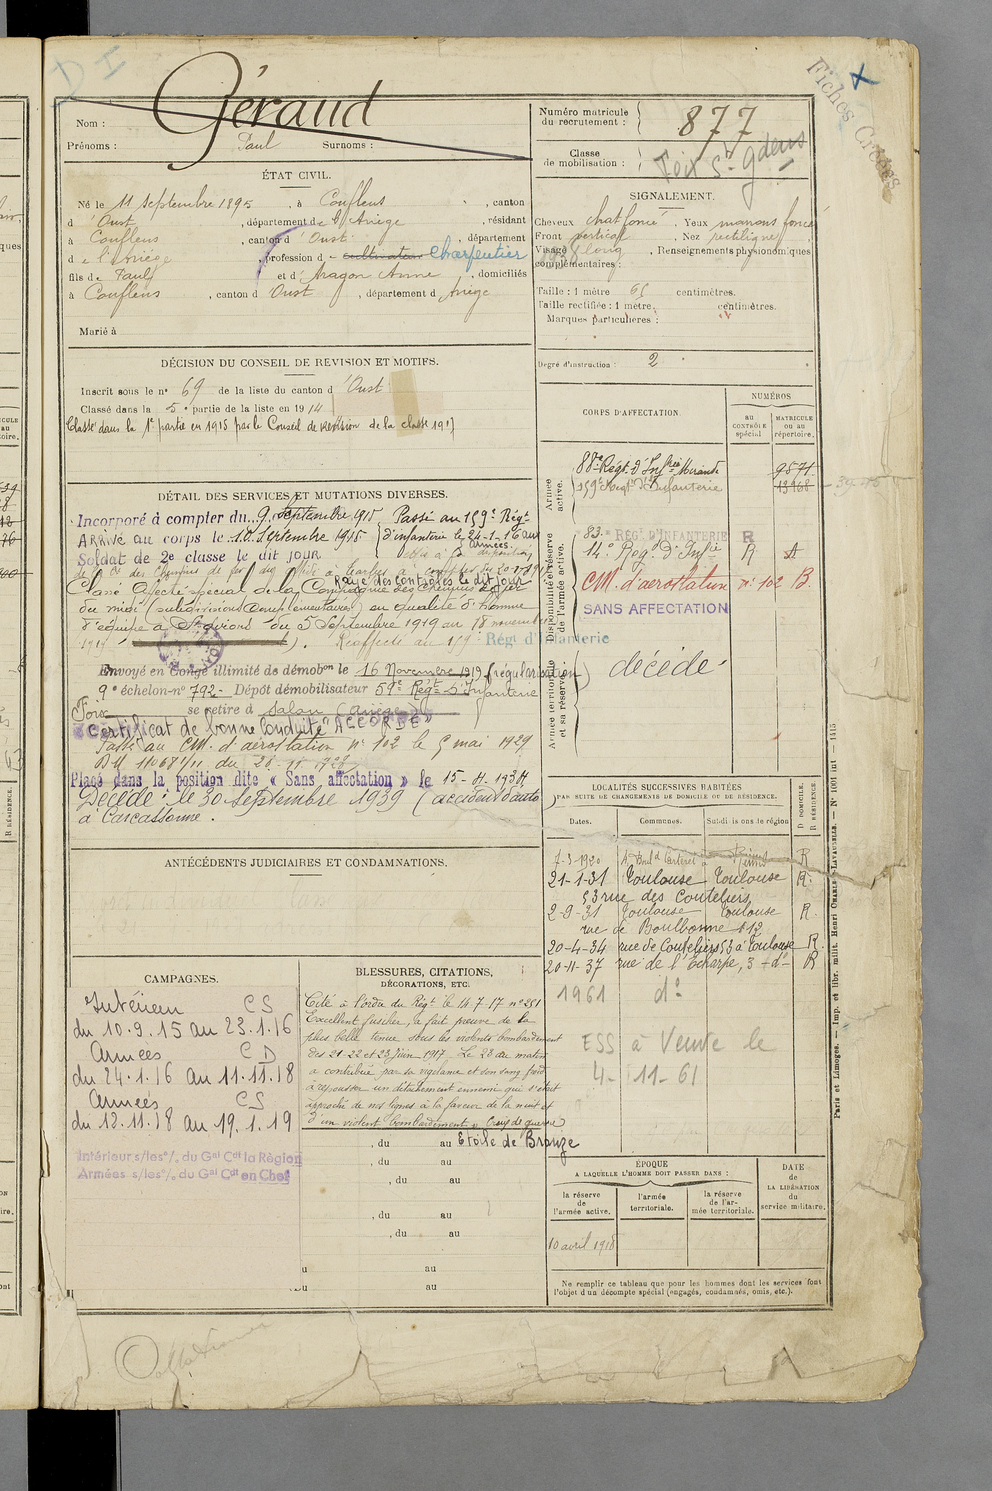 Géraud
Nom :
Prénoms : Paul Surnoms :
ÉTAT CIVIL.
Né le 11 Septembre 1895, à Couflens, canton
d'Oust, département de l'Ariège, résidant
à Couflens, canton d'Oust, département
d e l'Ariège, profession de cultivateur Charpentier
fils de Paul et d'Aragon Anne, domiciliés
à Couflens, canton d'Oust, département d Ariège
Marié à
DÉCISION DU CONSEIL DE REVISION ET MOTIFS.
Inscrit sous le n° 69 de la liste du canton d'Oust
Classé dans la 5e partie de la liste en 1914
Classé dans la 1e partie en 1915 par le Conseil de Révision de la classe 1917
DÉTAIL DES SERVICES ET MUTATIONS DIVERSES.
Incorporé à compter du 9 Septembre 1915 Passé au 159e Régt
ARRIVÉ au corps le 10 Septembre 1915 d'infanterie le 24-1-16 aux armées.
Soldat de 2e classe le dit jour
Rayé des contrôles le dit jour
Classé Affecté spécial de la Compagnie des Chemins de fer
du midi (subdivisions Complémentaires) en qualité d'homme
d'équipe à du 5 Septembre 1919 au 18 novembre
1919 Réaffecté au 159e Régt d'Infanterie
Envoyé en Congé illimité de démobon le 16 Novembre 1919 (régularisation)
9e échelon-n° 792- Dépôt démobilisateur 59e Régt d'Infanterie
Foix se retire à Salau (Ariège)
"Certificat de bonne Conduite" "ACCORDÉ"
Passé au CM. d'aérostation n° 102 le 5 mai 1929
Placé dans la position dite « Sans affectation » le 15-4-1934
Décédé : le 30 Septembre 1939 (accident d'auto
à Carcassonne.
ANTÉCÉDENTS JUDICIAIRES ET CONDAMNATIONS.
CAMPAGNES.
Intérieur CS
du 10.9.15 au 23.1.16
Armées CD
du 24.1.16 au 11.11.18
Armées CS
du 12.11.18 au 19.1.19
Intérieur s/les °/. du Gal Cdt la Région
Armées s/les °/. du Gal Cdt en Chef
BLESSURES, CITATIONS,
DÉCORATIONS, ETC.
Cité à l'ordre du Régt le 14-7-17 n° 251
Excellent fusilier, a fait preuve de la
plus belle tenue sous les violents bombardements
des 21-22 et 23 juin 1917. Le 23 au matin
a contribué par sa vigilance et son sang froid
à repousser un détachement ennemi qui s'était
approché de nos lignes à la faveur de la nuit et
d'un violent bombardement » Croix de guerre
, du au Etoile de Bronze
, du au
, du au
, du au
, du au
u au
u au
Numéro matricule
du recrutement : 877
Classe
de mobilisation :
Foix St Gaudens
Fiches Créées
SIGNALEMENT.
Cheveux chat. foncé, Yeux marrons foncé
Front vertical, Nez rectiligne
Visage long, Renseignements physionomiques
complémentaires :
Taille : 1 mètre 65 centimètres.
Taille rectifiée : 1 mètre, centimètres.
Marques particulières :
Degré d'instruction : 2
CORPS D'AFFECTATION.
NUMÉROS
au
CONTRÔLE
spécial
MATRICULE
ou au
répertoire.
Armée
active.
88e Régt d'Infrie Mirande 9871
159e Régt d'Infanterie 13968
Disponibilité et réserve
de l'armée active.
83e RÉGt D'INFANTERIE R
14e Régt d'Infie R A
CM. d'aérostation n° 102 B.
SANS AFFECTATION
Armée territoriale
et sa réserve
décédé
LOCALITÉS SUCCESSIVES HABITÉES
PAR SUITE DE CHANGEMENTS DE DOMICILE OU DE RÉSIDENCE.
Dates. Communes. Subdivisions ou région
D DOMICILE.
R RÉSIDENCE.
7-3-1920 R
21-1-31 Toulouse Toulouse R.
53 rue des Couteliers
2-9-31 Toulouse Toulouse R.
rue de Boulbonne n° 12
20-4-34 rue de Couteliers 53 à Toulouse R.
20-11-37 rue de l'Echarpe, 3 -do- R
1961 d°
ESS à Veuve le
4-11-61
ÉPOQUE
A LAQUELLE L'HOMME DOIT PASSER DANS :
DATE
de
LA LIBÉRATION
du
service militaire.
la réserve
de
l'armée active.
l'armée
territoriale.
la réserve
de l'ar-
mée territoriale.
10 avril 1918
Ne remplir ce tableau que pour les hommes dont les services font
l'objet d'un décompte spécial (engagés, condamnés, omis, etc.).
Paris et Limoges. — Imp. et libr. milit. Henri CHARLES-LAVAUZELLE. — N° 1001 int — 1415
Collationné